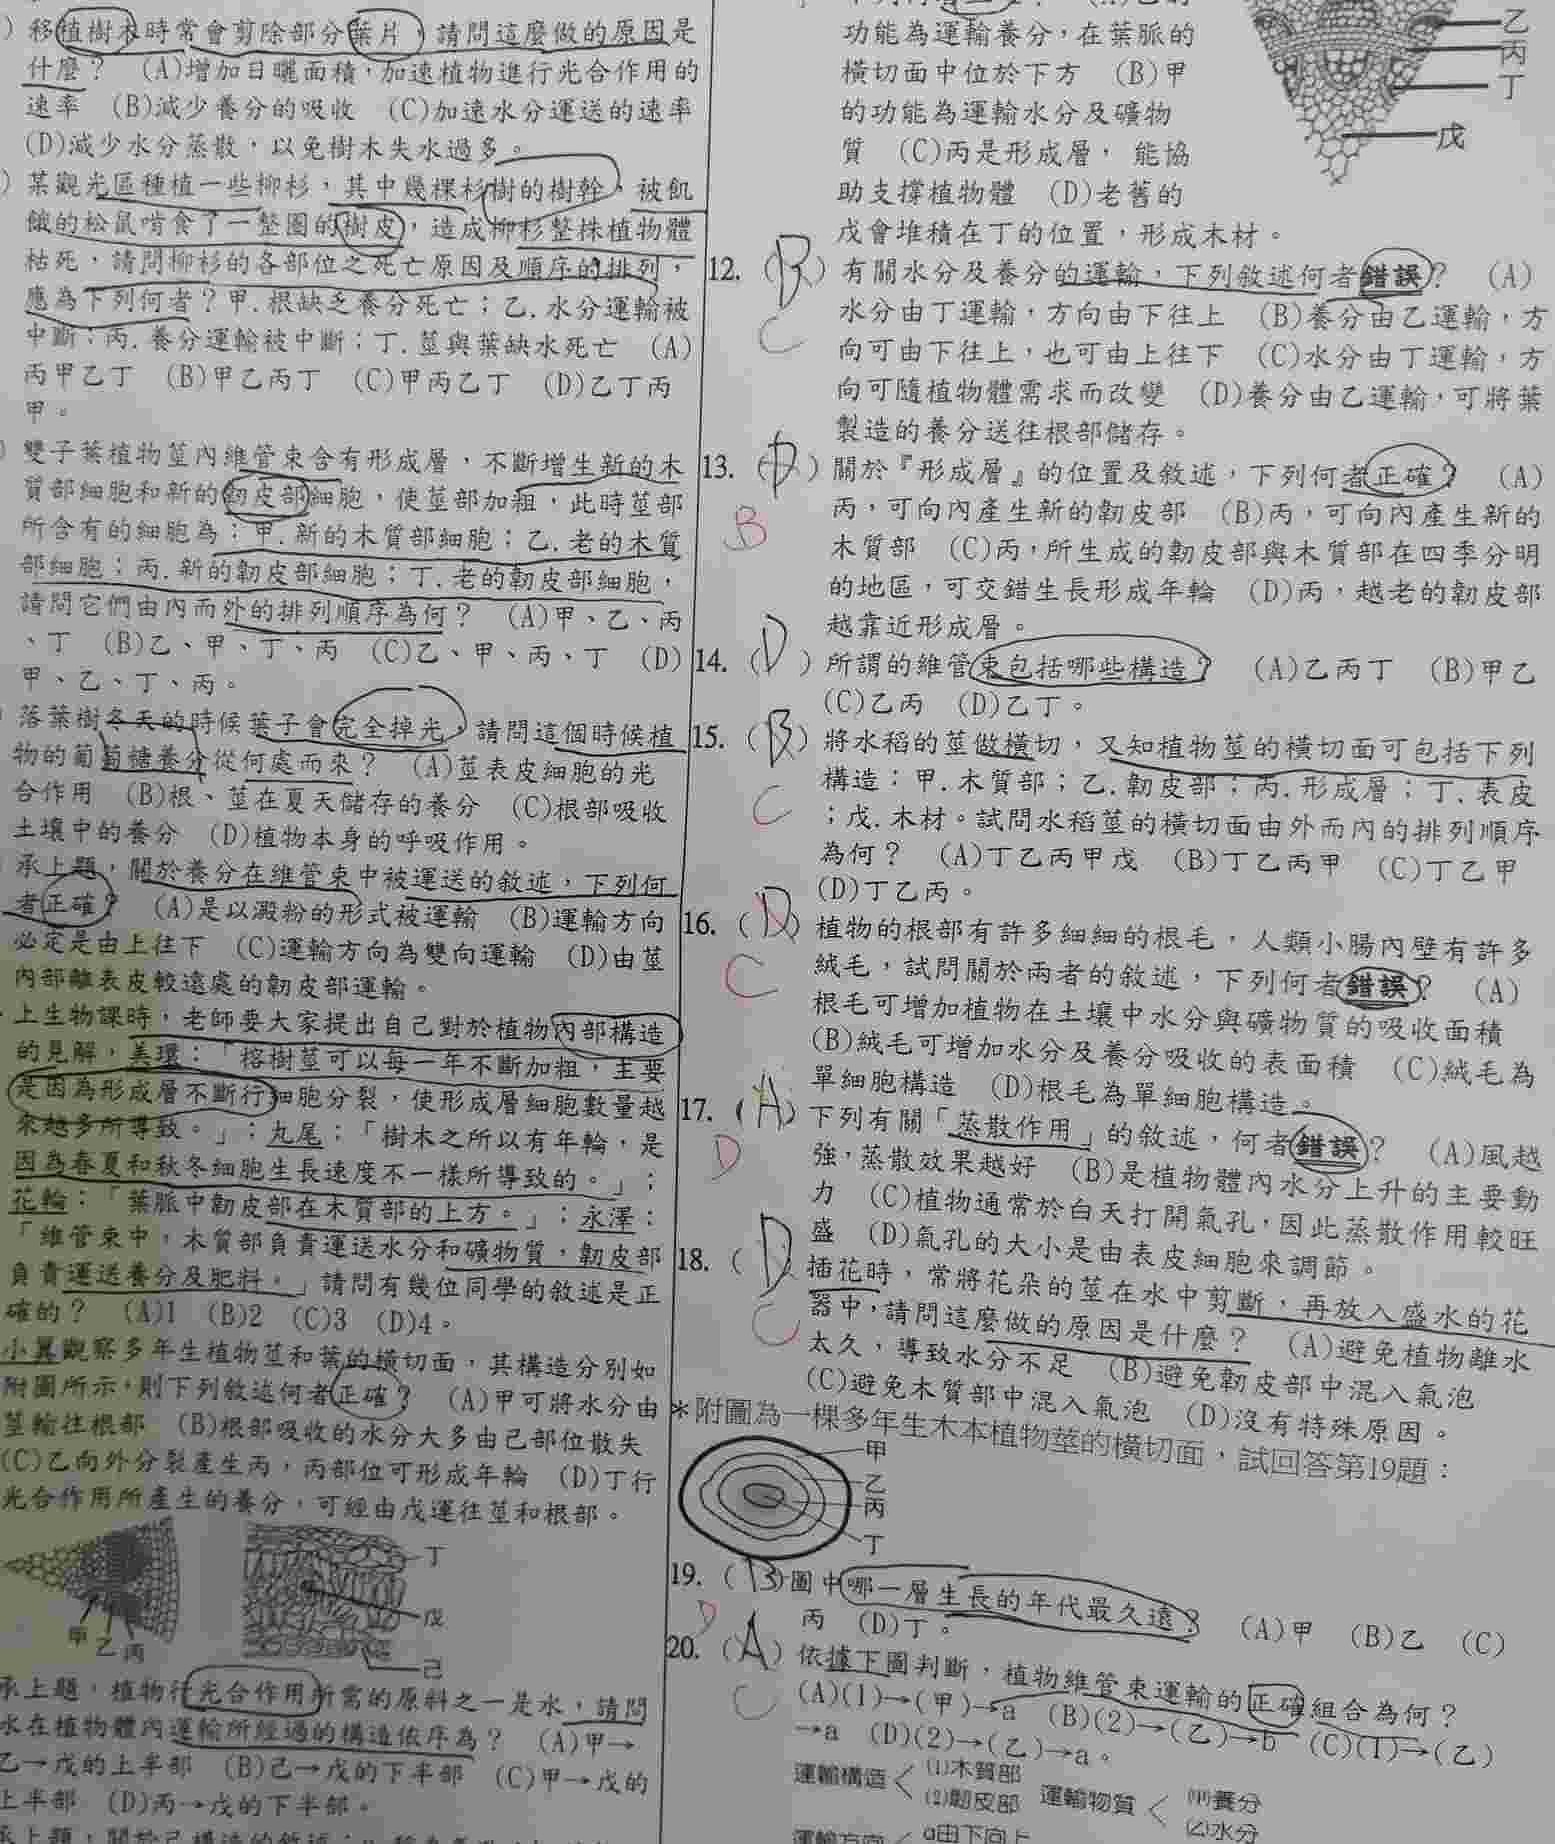 ）移植樹木時常會剪除部分葉片，請問這麼做的原因是
什麼？　(A)增加日曬面積，加速植物進行光合作用的
速率　(B)減少養分的吸收　(C)加速水分運送的速率
(D)減少水分蒸散，以免樹木失水過多。
）某觀光區種植一些柳杉，其中幾棵杉樹的樹幹，被飢
餓的松鼠啃食了一整圈的樹皮，造成柳杉整株植物體
枯死，請問柳杉的各部位之死亡原因及順序的排列，
應為下列何者？甲.根缺乏養分死亡；乙.水分運輸被
中斷；丙.養分運輸被中斷；丁.莖與葉缺水死亡　(A)
丙甲乙丁　(B)甲乙丙丁　(C)甲丙乙丁　(D)乙丁丙
甲。
）雙子葉植物莖內維管束含有形成層，不斷增生新的木
質部細胞和新的韌皮部細胞，使莖部加粗，此時莖部
所含有的細胞為：甲.新的木質部細胞；乙.老的木質
部細胞；丙.新的韌皮部細胞；丁.老的韌皮部細胞，
請問它們由內而外的排列順序為何？　(A)甲、乙、丙
、丁　(B)乙、甲、丁、丙　(C)乙、甲、丙、丁　(D)
甲、乙、丁、丙。
）落葉樹冬天的時候葉子會完全掉光，請問這個時候植
物的葡萄糖養分從何處而來？　(A)莖表皮細胞的光
合作用　(B)根、莖在夏天儲存的養分　(C)根部吸收
土壤中的養分　(D)植物本身的呼吸作用。
承上題，關於養分在維管束中被運送的敘述，下列何
者正確？　(A)是以澱粉的形式被運輸　(B)運輸方向
必定是由上往下　(C)運輸方向為雙向運輸　(D)由莖
內部離表皮較遠處的韌皮部運輸。
上生物課時，老師要大家提出自己對於植物內部構造
的見解，美環：「榕樹莖可以每一年不斷加粗，主要
是因為形成層不斷行細胞分裂，使形成層細胞數量越
來越多所導致。」；丸尾：「樹木之所以有年輪，是
因為春夏和秋冬細胞生長速度不一樣所導致的。」；
花輪：「葉脈中韌皮部在木質部的上方。」；永澤：
「維管束中，木質部負責運送水分和礦物質，韌皮部
負責運送養分及肥料。」請問有幾位同學的敘述是正
確的？　(A)1　(B)2　(C)3　(D)4。
小翼觀察多年生植物莖和葉的橫切面，其構造分別如
附圖所示，則下列敘述何者正確？　(A)甲可將水分由
莖輸往根部　(B)根部吸收的水分大多由己部位散失
(C)乙向外分裂產生丙，丙部位可形成年輪　(D)丁行
光合作用所產生的養分，可經由戊運往莖和根部。
丁
戊
己
甲 乙 丙
承上題，植物行光合作用所需的原料之一是水，請問
水在植物體內運輸所經過的構造依序為？　(A)甲→
乙→戊的上半部　(B)己→戊的下半部　(C)甲→戊的
上半部　(D)丙→戊的下半部。
功能為運輸養分，在葉脈的
橫切面中位於下方　(B)甲
的功能為運輸水分及礦物
質　(C)丙是形成層，能協
助支撐植物體　(D)老舊的
戊會堆積在丁的位置，形成木材。
乙
丙
丁
戊
12.（B）有關水分及養分的運輸，下列敘述何者錯誤？　(A)
C
水分由丁運輸，方向由下往上　(B)養分由乙運輸，方
向可由下往上，也可由上往下　(C)水分由丁運輸，方
向可隨植物體需求而改變　(D)養分由乙運輸，可將葉
製造的養分送往根部儲存。
13.（D）關於『形成層』的位置及敘述，下列何者正確？　(A)
B
丙，可向內產生新的韌皮部　(B)丙，可向內產生新的
木質部　(C)丙，所生成的韌皮部與木質部在四季分明
的地區，可交錯生長形成年輪　(D)丙，越老的韌皮部
越靠近形成層。
14.（D）所謂的維管束包括哪些構造？　(A)乙丙丁　(B)甲乙
(C)乙丙　(D)乙丁。
15.（B）將水稻的莖做橫切，又知植物莖的橫切面可包括下列
C
構造：甲.木質部；乙.韌皮部；丙.形成層；丁.表皮
；戊.木材。試問水稻莖的橫切面由外而內的排列順序
為何？　(A)丁乙丙甲戊　(B)丁乙丙甲　(C)丁乙甲
(D)丁乙丙。
16.（D）植物的根部有許多細細的根毛，人類小腸內壁有許多
C
絨毛，試問關於兩者的敘述，下列何者錯誤？　(A)
根毛可增加植物在土壤中水分與礦物質的吸收面積
(B)絨毛可增加水分及養分吸收的表面積　(C)絨毛為
單細胞構造　(D)根毛為單細胞構造。
17.（A）下列有關「蒸散作用」的敘述，何者錯誤？　(A)風越
D
強，蒸散效果越好　(B)是植物體內水分上升的主要動
力　(C)植物通常於白天打開氣孔，因此蒸散作用較旺
盛　(D)氣孔的大小是由表皮細胞來調節。
18.（D）插花時，常將花朵的莖在水中剪斷，再放入盛水的花
C
器中，請問這麼做的原因是什麼？　(A)避免植物離水
太久，導致水分不足　(B)避免韌皮部中混入氣泡
(C)避免木質部中混入氣泡　(D)沒有特殊原因。
＊附圖為一棵多年生木本植物莖的橫切面，試回答第19題：
甲
乙
丙
丁
19.（B）圖中哪一層生長的年代最久遠？　(A)甲　(B)乙　(C)
D
丙　(D)丁。
20.（A）依據下圖判斷，植物維管束運輸的正確組合為何？
C
(A)(1)→(甲)→a　(B)(2)→(乙)→b　(C)(1)→(乙)
→a　(D)(2)→(乙)→a。
運輸構造 (1)木質部
(2)韌皮部　運輸物質 (甲)養分
(乙)水分
運輸方向 a由下向上